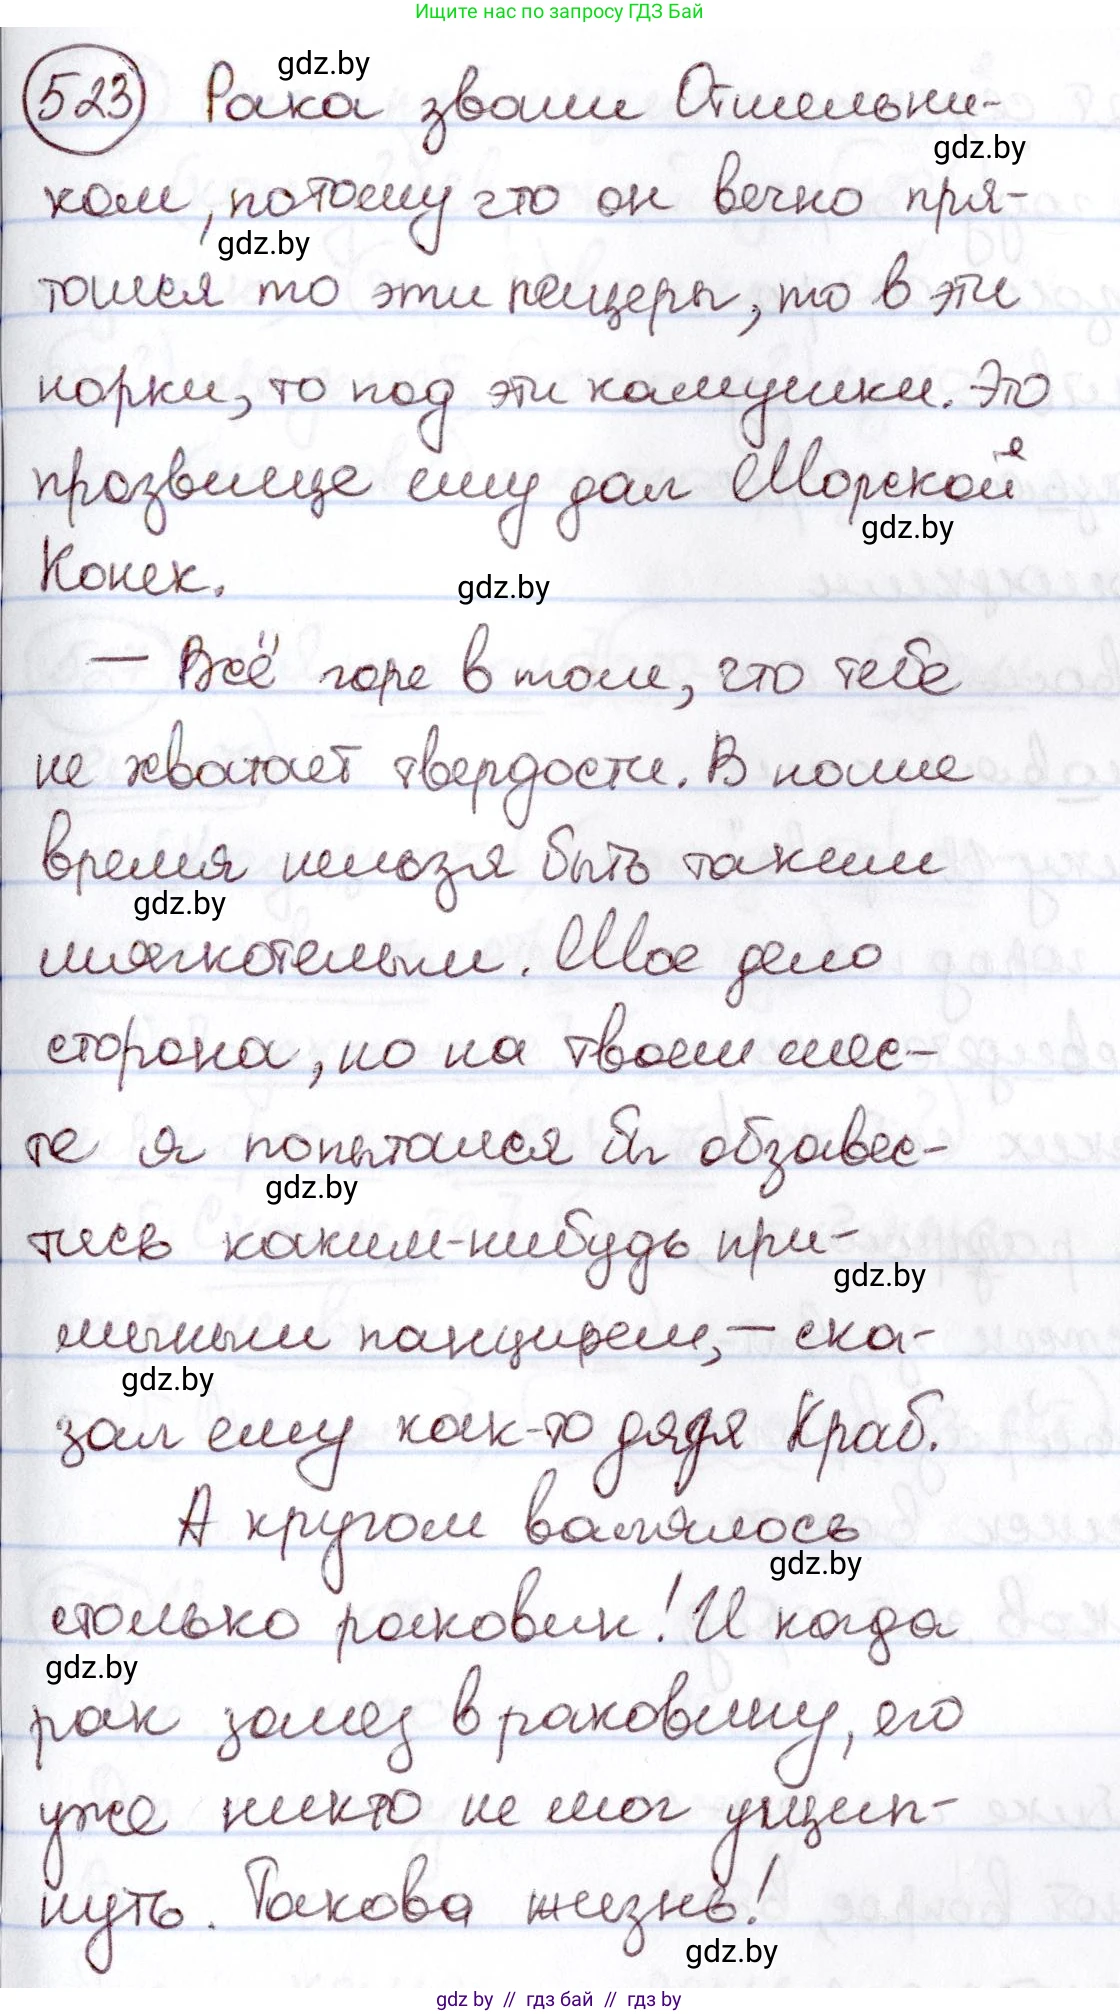 Ищите нас по запросу ГДЗ Бай
523 Рака звали Отшельни-
gdz.by
gdz.by
ком, потому что он вечно пря-
gdz.by
тался то эти пещеры, то в эти
норки, то под эти камушки. Это
прозвище ему дал Морской
gdz.by
Конек.
gdz.by
— Всё горе в том, что тебе
не хватает твердости. В наше
время нельзя быть таким
gdz.by
мягкотелым. Мое дело
сторона, но на твоем мес-
те я попытался бы обзавес-
gdz.by
тись каким-нибудь при-
gdz.by
личным панцирем, — ска-
gdz.by
зал ему как-то дядя Краб.
А кругом валялось
gdz.by
столько раковин! И когда
gdz.by
рак залез в раковину, его
уже никто не мог ущип-
нуть. Такова жизнь!
gdz.by
gdz by // гдз бай // гдз by